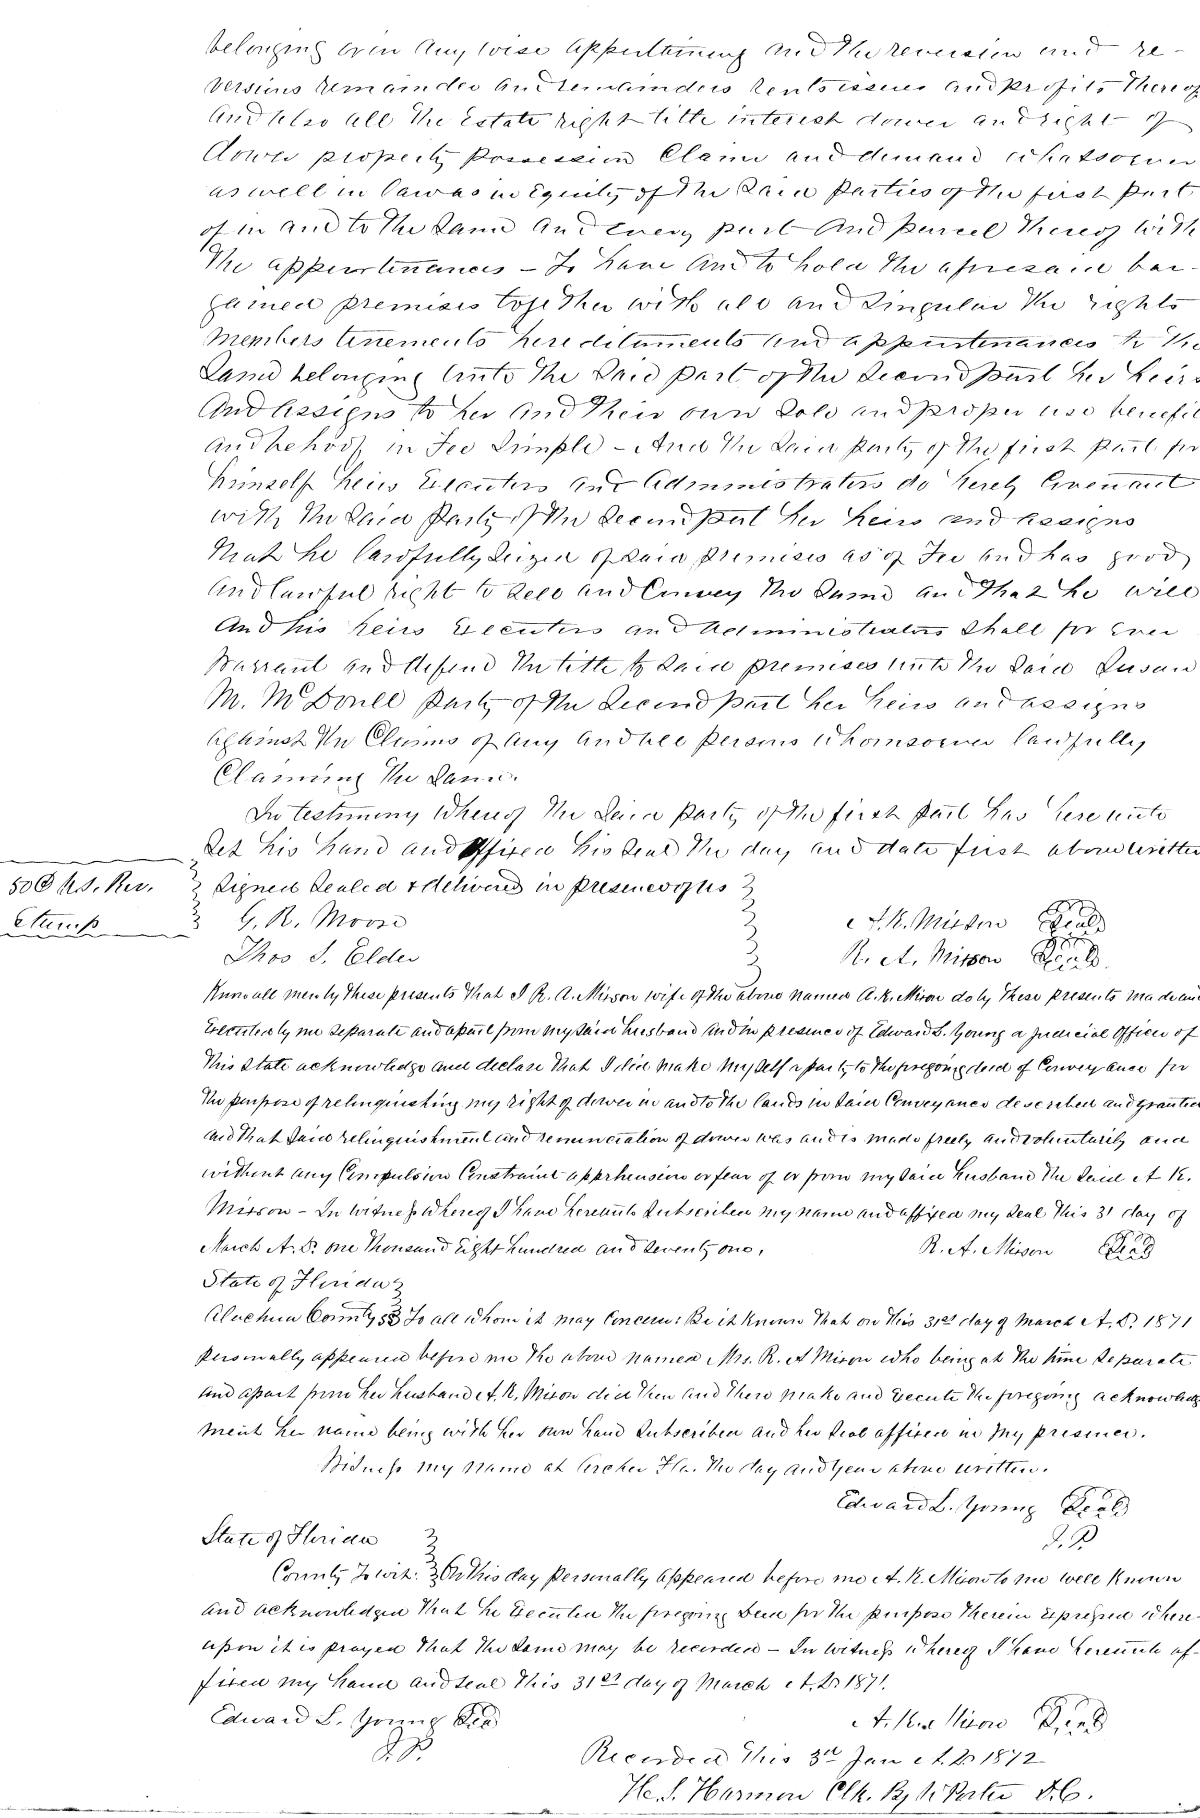 belonging or in any wise appertaining and the reversion and re-
versions remainder and remainders rents issues and profits thereof
and also all the Estate right title interest dower and right of
dower property possession Claim and demand whatsoever
as well in law as in Equity of the said parties of the first part
of in and to the same and every part and parcel thereof with
the appurtenances – To have and to hold the aforesaid bar-
gained premises together with all and singular the rights
members tenements hereditaments and appurtenances to the
same belonging unto the said part of the second part her heirs
and assigns to her and their own sole and proper use benefit
and behoof in Fee Simple – And the said party of the first part for
himself heirs Executors and Administrators do hereby Covenant
with the said party of the second part her heirs and assigns
that he lawfully seized of said premises as of Fee and has good
and lawful right to sell and Convey the same and that he will
and his heirs Executors and Administrators shall for ever
Warrant and defend the title to said premises unto the said Susan
M. McDonell party of the second part her heirs and assigns
against the Claims of any and all persons whomsoever lawfully
Claiming the same.
In testimony whereof the said party of the first part has hereunto
set his hand and affixed his seal the day and date first above written
50 ¢ U.S. Rev. Signed sealed & delivered in presence of us
Stamp G. R. Moore A. K. Mixson Seal
Thos S. Elder R. A. Mixson Seal
Know all men by these presents that I R. A. Mixson wife of the above named A. K. Mixon do by these presents made and
Executed by me separate and apart from my said husband and in presence of Edward L. Young a Judicial Officer of
this State acknowledge and declare that I did make myself a party to the foregoing deed of Conveyance for
the purpose of relinquishing my right of dower in and to the lands in said Conveyance described and granted
and that said relinquishment and renunciation of dower was and is made freely and voluntarily and
without any Compulsion Constraint apprehension or fear of or from my said husband the said A K.
Mixson – In witness whereof I have hereunto subscribed my name and affixed my seal this 31 day of
March A. D. one thousand Eight hundred and seventy one. R. A. Mixson Seal
State of Florida
Alachua County SS To all whom it may Concern: Be it Known that on this 31st day of March A. D. 1871
personally appeared before me the above named Mrs. R. A Mixon who being at the time separate
and apart from her husband A. K. Mixon did then and there make and Execute the foregoing acknowledg
ment her name being with her own hand subscribed and her seal affixed in my presence.
Witness my name at Archer Fla. the day and year above written.
Edward L. Young Seal
J. P.
State of Florida
County To wit: On this day personally appeared before me A. K. Mixon to me well Known
and acknowledged that he Executed the foregoing Deed for the purpose therein Expressed where-
upon it is prayed that the same may be recorded – In witness whereof I have hereunto af-
fixed my hand and seal this 31st day of March A. D. 1871.
Edward L. Young Seal A. K. Mixon Seal
J. P. Recorded this 3rd Jan A. D. 1872
H. S. Harmon Clk. By W Porter D. C.